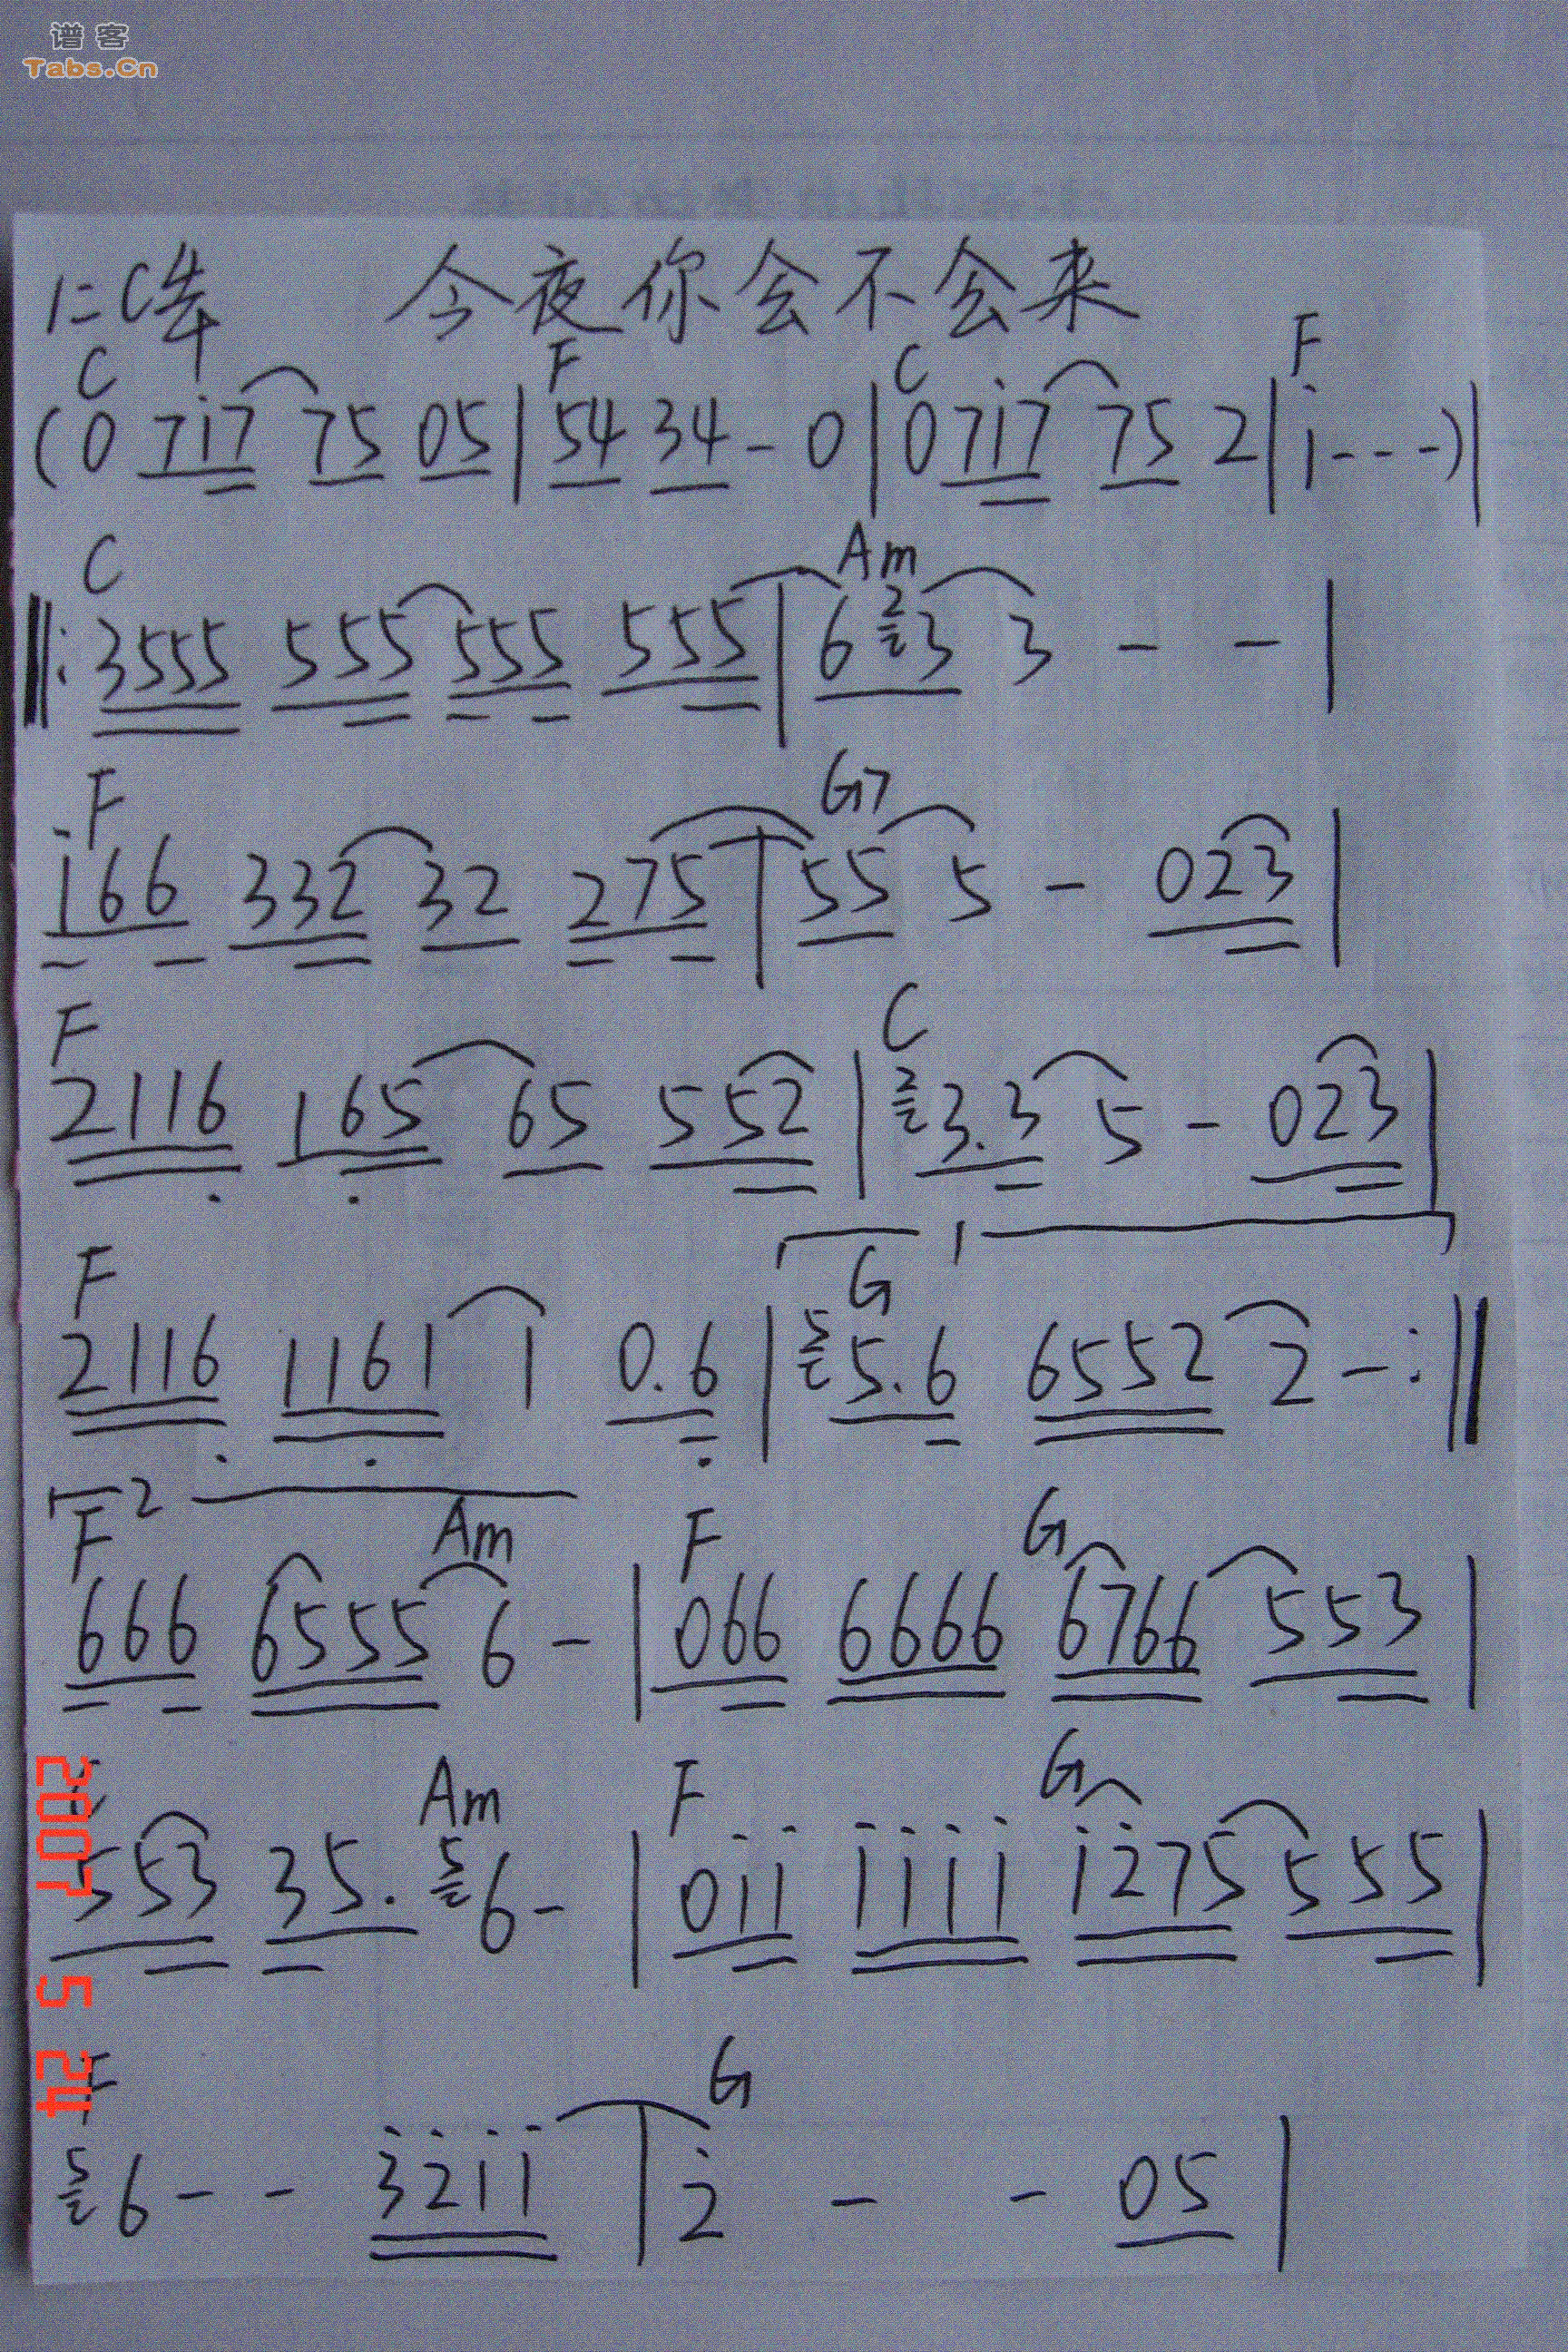 谱客
Tabs.Cn
1=C 4/4 今夜你会不会来
C F C F
(0 7i7 75 05|54 34-0|07i7 75 2|i---)|
C Am
‖:3555 555 555 555|6 2 3 3 - -|
F G7
i66 332 32 275|55 5 - 023|
F C
2116 165 65 552|2 3.3 5-023|
1
F G
2116 1161 1 0.6|5 5.6 6552 2-:‖
2
F Am F G
666 6555 6-|066 6666 6766 553|
Am F G
553 35. 5 6-|0ii iiii i275 555|
F G
5 6-- 32ii|2 - - 05|
2007 5 24